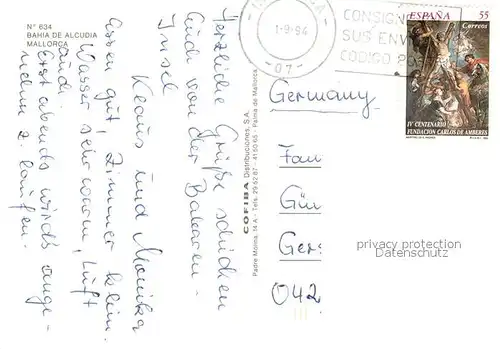 N° 634
BAHIA DE ALCUDIA
MALLORCA
Herzliche Grüße schicken
Euch von der Balearen-
Insel
Klaus und Monika
Essen gut, Zimmer klein.
Wasser sehr warm, Luft
auch.
Erst abends wird's ange-
nehm z. laufen.
COFIBA Distribuciones, S.A.
Padre Molina, 14 A - Tels. 29 62 87 - 41 60 65 - Palma de Mallorca
1-9-94
-07-
CONSIGN
SUS ENV
CODIGO POS
ESPAÑA 55
Correos
IV CENTENARIO
FUNDACION CARLOS DE AMBERES
Germany
Fam
Gün
Gers
042
privacy protection
Datenschutz